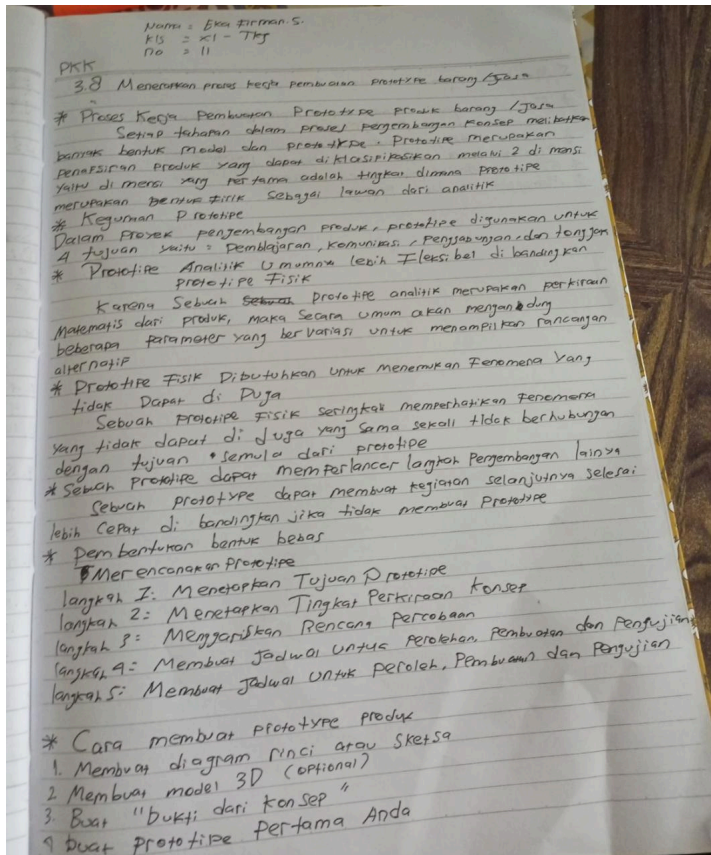 Nama = Eka Firman.S.
Kls = XI - TKJ
no = 11
PKK
3.8 Menerapkan proses kerja pembuatan prototype barang/Jasa
* Proses Kerja Pembuatan Prototype produk barang / Jasa
Setiap tahapan dalam proses pergembangan konsep melibatkan
banyak bentuk model dan prototype. Prototipe merupakan
penafsiran produk yang dapat diklasifikasikan melalui 2 di mensi
yaitu di mensi yang pertama adalah tingkat dimana prototipe
merupakan bentuk fisik sebagai lawan dari analitik
* Kegunaan Prototipe
Dalam proyek pengembangan produk, prototipe digunakan untuk
4 tujuan yaitu = Pemblajaran, komunikasi, penggabungan, dan tonggak
* Prototipe Analitik Umumnya lebih Fleksibel di bandingkan
prototipe Fisik
Karena Sebuah Sebuah prototipe analitik merupakan perkiraan
Matematis dari produk, maka secara umum akan mengandung
beberapa parameter yang bervariasi untuk menampilkan rancangan
alternatif
* Prototipe Fisik Dibutuhkan untuk menemukan Fenomena Yang
tidak Dapat di Duga
Sebuah prototipe Fisik seringkali memperhatikan Fenomena
yang tidak dapat di duga yang sama sekali tidak berhubungan
dengan tujuan semula dari prototipe
* Sebuah prototipe dapat memperlancar langkah Pergembangan lainya
Sebuah prototype dapat membuat kegiatan selanjutnya selesai
lebih cepat di bandingkan jika tidak membuat Prototype
* Pembentukan bentuk bebas
Merencanakan Prototipe
langkah I: Menetapkan Tujuan Prototipe
langkah 2: Menetapkan Tingkat Perkiraan Konsep
langkah 3: Menggariskan Rencana Percobaan
langkah 4: Membuat Jadwal untuk Perolehan, Pembuatan dan Pengujian
langkah 5: Membuat Jadwal untuk peroleh, Pembuatan dan Pengujian
* Cara membuat prototype produk
1. Membuat diagram rinci atau sketsa
2 Membuat model 3D (optional)
3. Buat "bukti dari konsep"
4 buat prototipe pertama Anda